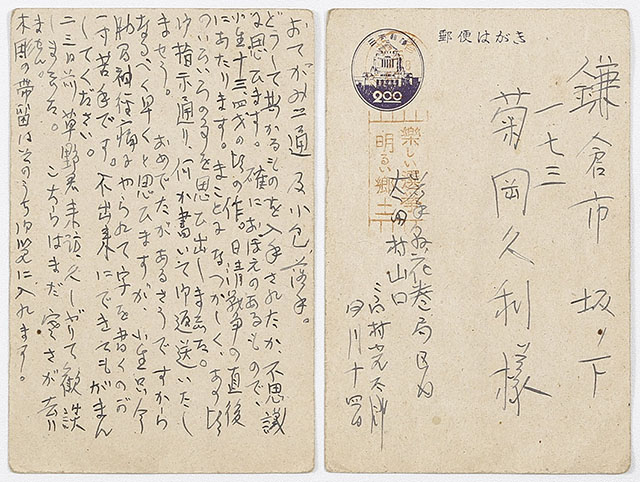 おてがみ二通及小包落手。
どうして斯かるものを入手されたか不思議
に思ひます。確におぼえのあるもので、
小生十三、四才の頃の作。日清戦争の直後
にあたります。まことになつかしく、あの頃
のいろいろの事を思ひ出しました。
御指示通り、何か書いて御返送いたし
ませう。おめでたがあるさうですから
なるべく早くと思ひますが、小生只今
肋間神経痛にやられて字を書くのが
一寸苦手です。不出来にできてもがまん
してください。
二三日前草野君来訪、久しぶりで歓談
しました。こちらはまだ寒さが去り
ません。
木彫の帯留はそのうち御覧に入れます。
郵便はがき
日本郵便
2.00
楽しい選挙
明るい郷土
鎌倉市坂ノ下
一七三
菊岡久利様
岩手県花巻局区内
太田村山口
高村光太郎
四月十四日